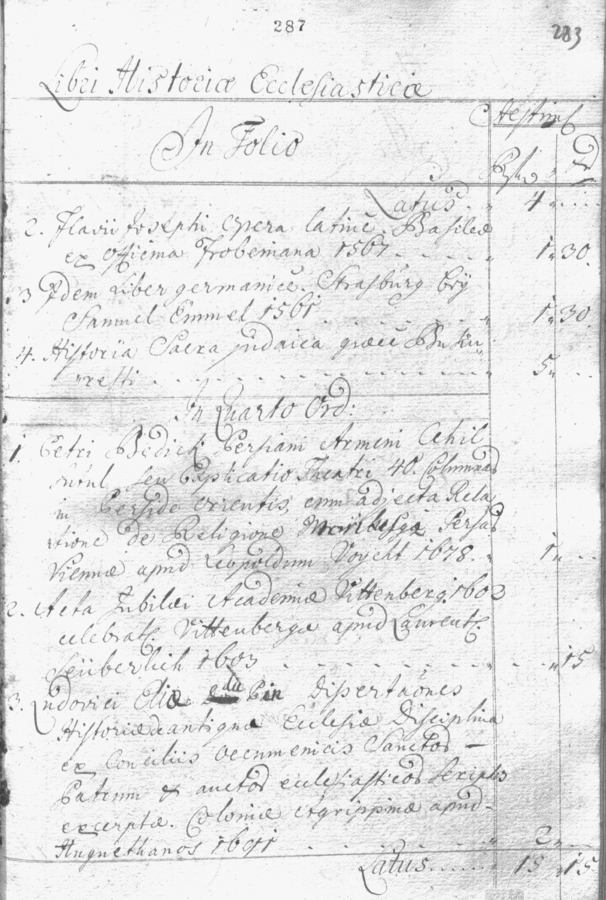 287
283
Libri Historiæ Ecclesiasticæ
In Folio
Æstim
Latus . . 4 . . .
2. Flavii Josephi Opera latine. Basileæ
ex officina Frobeniana 1567 . . . . 1 „ 30.
3 Idem Liber germanice. Strasburg bey
Samuel Emmel 1561 . . . . 1 „ 30
4. Historia Sacra judaica græce Buku-
resti . . . . 5 „ . . .
In Quarto Ord:
1. Petri Bedick Persiani Armeni Cehil
Sutul seu Explicatio Theatri 40. Columnar
in Perside Orientis, cum adjecta Rela
tione de Religione Moribusqe Persar
Viennæ apud Leopoldum Voyght 1678. „ 1 „ . . .
2. Acta Jubilæi Academiæ Vittenberg. 1602
celebrat. Vittenbergæ apud Laurent.
Seüberlich 1603 . . . . „ 15
3. Ludovici Eliæ du Pin Dissertaōnes
Historicæ de antiqua Ecclesiæ Disciplina
ex Conciliis Oecumenicis Sanctor
Patrum & auctor ecclesiasticor Scriptis
excerptæ. Coloniæ Agrippinæ apud
Huguethanos 1691 . . . . „ 2 „ . . .
Latus . . . . 15 „ 15